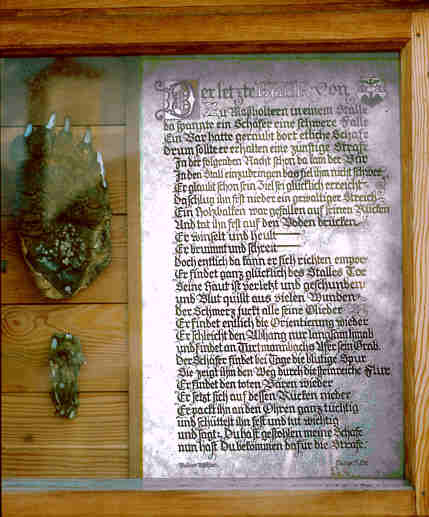 Der letzte von
Zu Maßholtern in einem Stalle
da spannte ein Schäfer eine schwere Falle
Ein Bär hatte geraubt dort etliche Schafe
drum sollt er erhalten eine zünftige Strafe
In der folgenden Nacht schon da kam der Bär
In den Stall einzudringen das fiel ihm nicht schwer
Er glaubt schon sein Ziel sei glücklich erreicht
da schlug ihn fest nieder ein gewaltiger Streich
Ein Holzbalken war gefallen auf seinen Rücken
Und tat ihn fest auf den Boden drücken
Er winselt und heult
Er brummt und schreit
doch entlich da kann er sich richten empor
Er findet ganz glücklich des Stalles Tor
Seine Haut ist verletzt und geschunden
und Blut quillt aus vielen Wunden
der Schmerz zuckt alle seine Glieder
Er findet entlich die Orientierung wieder
Er schleicht den Abhang nur zum
und findet an Turtmannbachs Ufer sein Grab.
Der Schäfer findet bei Tage die blutige Spur
Sie zeigt ihm den Weg durch die steinreiche Flur
Er findet den toten Bären wieder
Er setzt sich auf dessen Rücken nieder
Er packt ihn an den Ohren ganz tüchtig
und schüttelt ihn fest und tut wichtig
und sagt: Du hast gestohlen meine Schafe
nun hast Du bekommen dafür die Strafe.